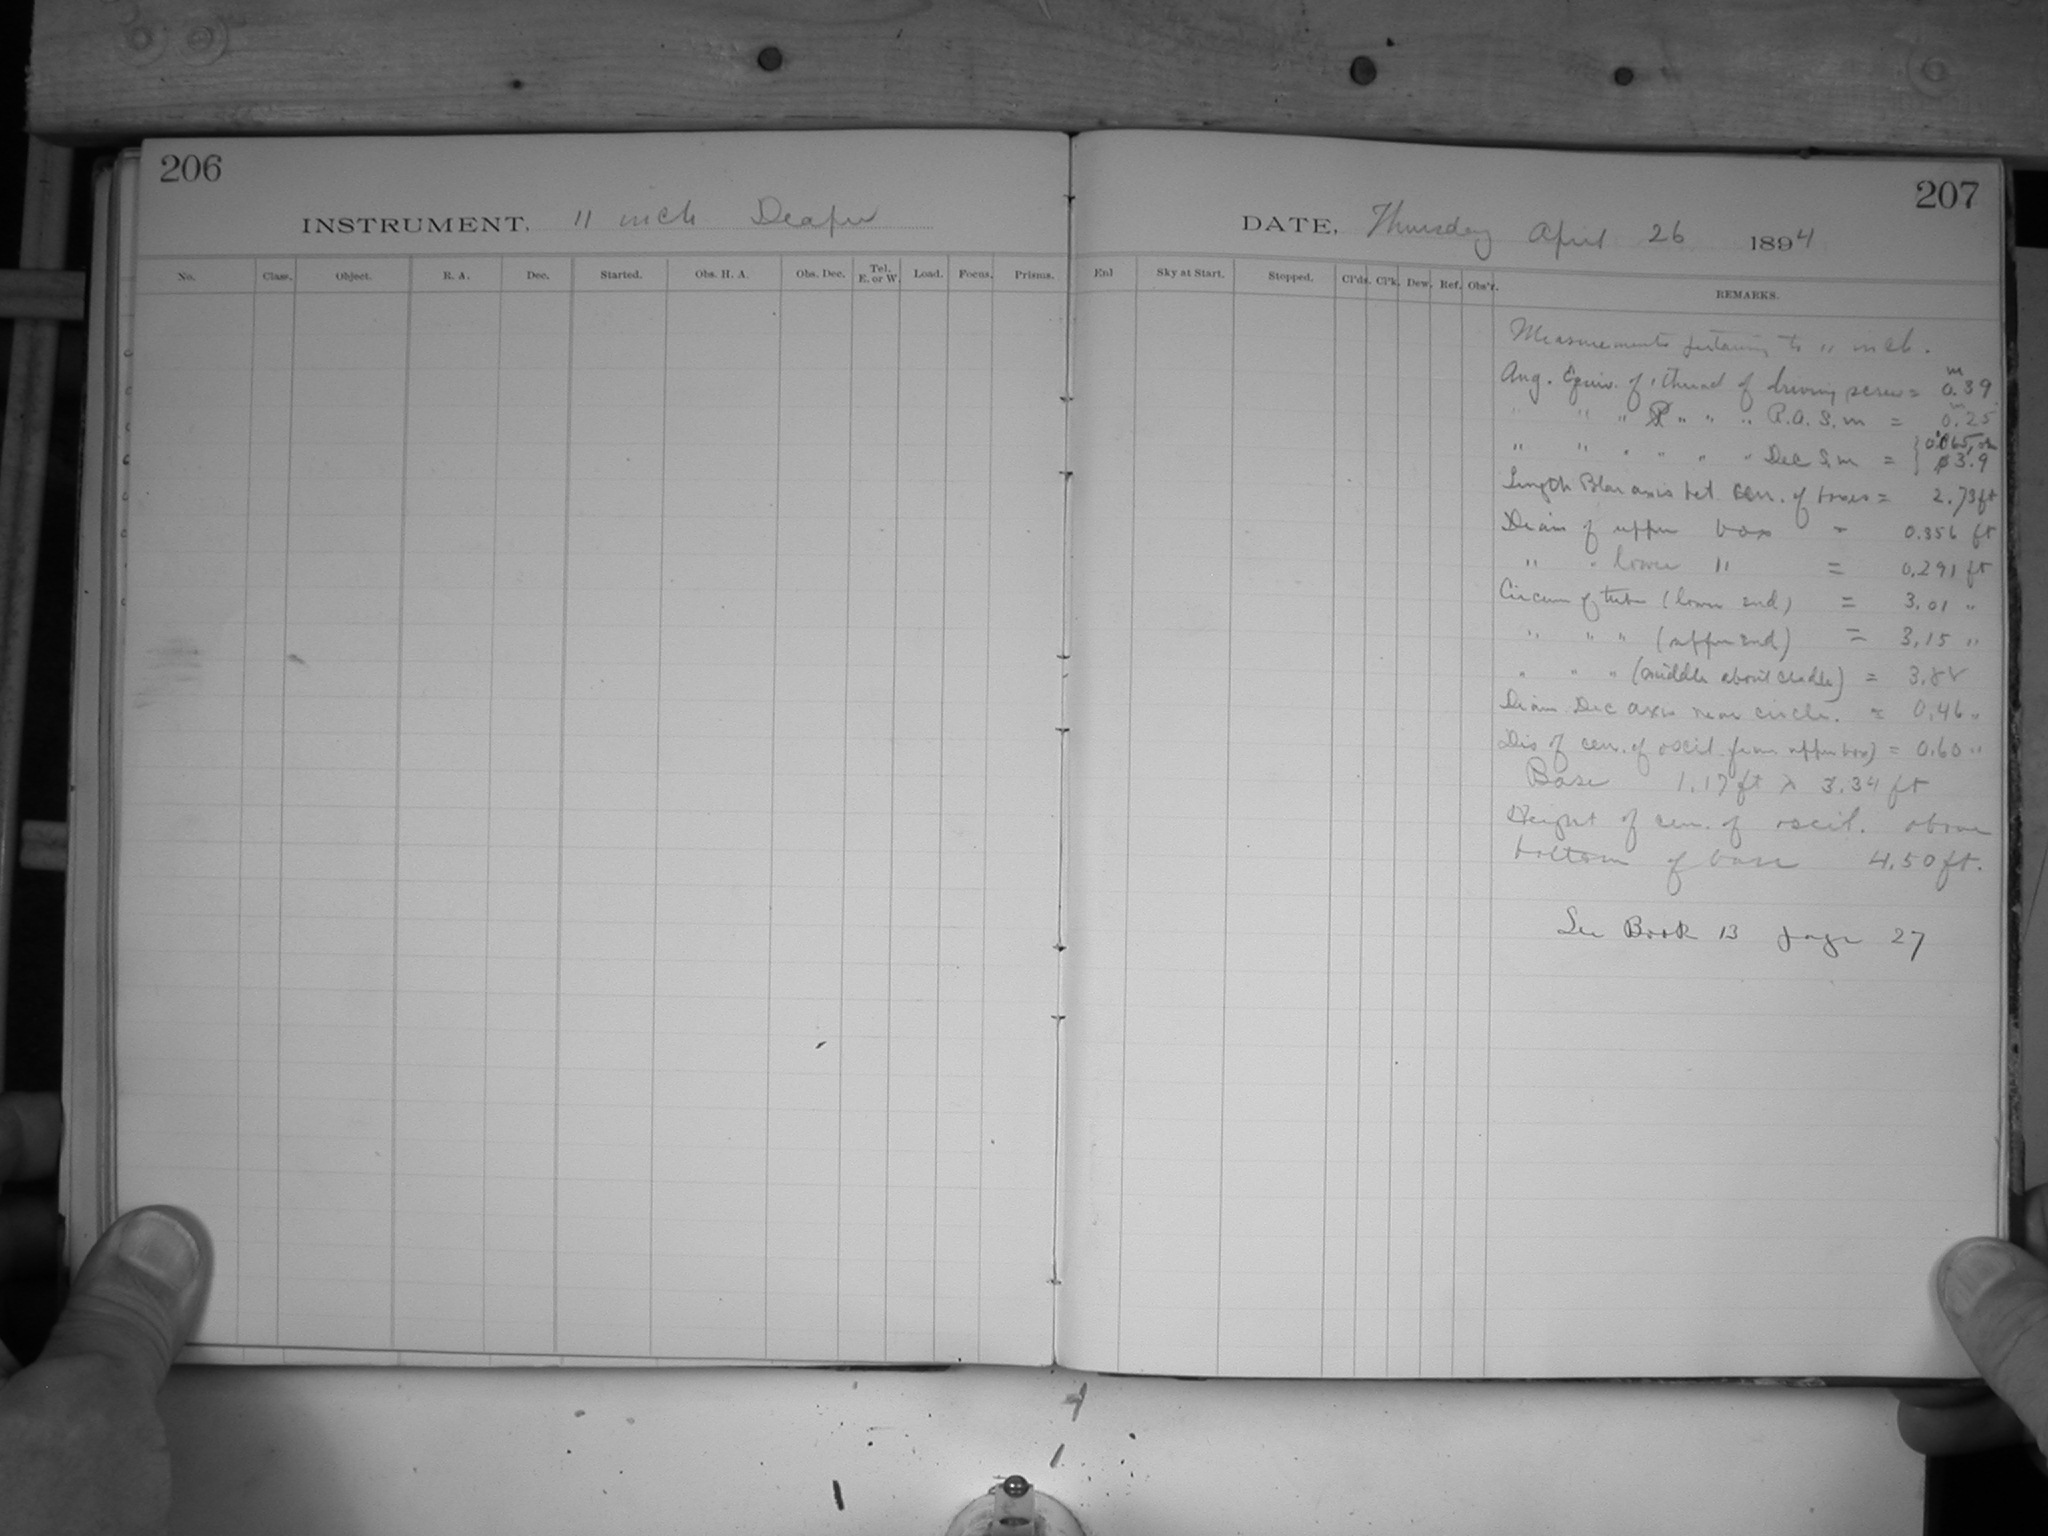 206
INSTRUMENT. 11 inch Draper
No. Class. Object. R. A. Dec. Started. Obs. H. A. Obs. Dec. Tel. E. or W. Load. Focus. Prisms.
207
DATE. Thursday April 26 1894
Enl Sky at Start. Stopped. Cl'ds. Cl'k. Dew. Ref. Obs'r. REMARKS.
Measurements pertaining to 11 inch.
Ang. Equiv. of 1 thread of driving screw = 0.39 m
" " " " " " R.A. S.m = 0.25 m
" " " " " " Dec S.m = { 0.065, or
3.9
Length Polar axis bet. cen. of boxes = 2.73 ft
Diam of upper box = 0.356 ft
" " lower " = 0.291 ft
Circum of tube (lower end) = 3.01 "
" " " (upper end) = 3.15 "
" " " (middle about cradle) = 3.88
Diam Dec axis near circle. = 0.46 "
Dis of cen. of oscil. from upper box) = 0.60 "
Base 1.17 ft x 3.34 ft
Height of cen. of oscil. above
bottom of base 4.50 ft.
See Book 13 page 27